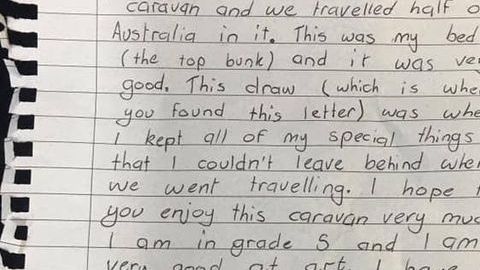 caravan and we travelled half o
Australia in it. This was my bed
(the top bunk) and it was ver
good. This draw (which is whe
you found this letter) was whe
I kept all of my special things
that I couldn't leave behind when
we went travelling. I hope t
you enjoy this caravan very muc
I am in grade 5 and I am
very good at art. I have